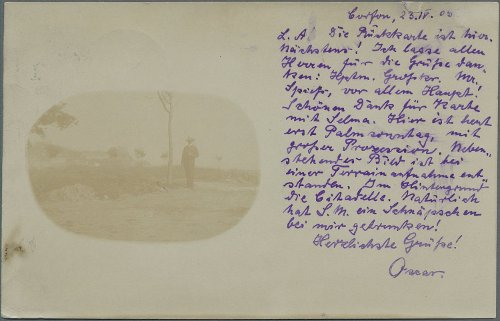 Corfou, 23.IV.05
L. A! Die Rückkarte ist hier.
Nächstens! Ich lasse allen
Herren für die Grüße dan-
ken: Hptm. Großter. Mr.
vor allem Haupt.
Schönen Dank für Karte
mit Selma. Hier ist heut
erst Palmsonntag, mit
großer Prozession. Neben-
stehendes Bild ist bei
einer Terrainaufnahme ent-
standen. Im Hintergrund
die Citadelle. Natürlich
hat S. M. ein Schnäpschen
bei mir getrunken!
Herzlichste Grüße!
Oscar.